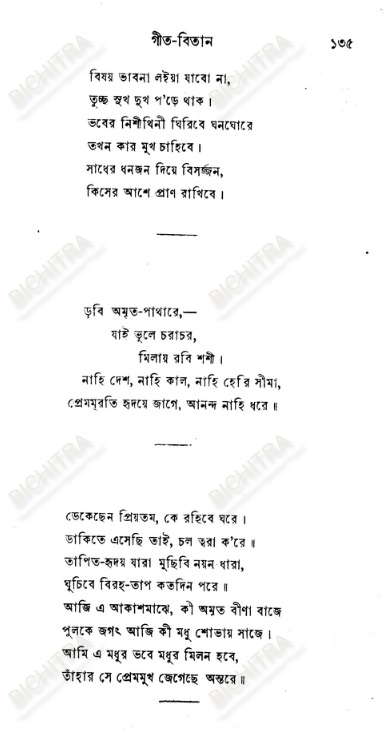 গীত-বিতান ১৩৫
বিষয় ভাবনা লইয়া যাবো না,
তুচ্ছ সুখ দুখ প'ড়ে থাক।
ভবের নিশীথিনী ঘিরিবে ঘনঘোরে
তখন কার মুখ চাহিবে।
সাধের ধনজন দিয়ে বিসর্জ্জন,
কিসের আশে প্রাণ রাখিবে।
ডুবি অমৃত-পাথারে,—
যাই ভুলে চরাচর,
মিলায় রবি শশী।
নাহি দেশ, নাহি কাল, নাহি হেরি সীমা,
প্রেমমূরতি হৃদয়ে জাগে, আনন্দ নাহি ধরে॥
ডেকেছেন প্রিয়তম, কে রহিবে ঘরে।
ডাকিতে এসেছি তাই, চল ত্বরা ক'রে॥
তাপিত-হৃদয় যারা মুছিবি নয়ন-ধারা,
ঘুচিবে বিরহ-তাপ কতদিন পরে॥
আজি এ আকাশমাঝে, কী অমৃত বীণা বাজে
পুলকে জগৎ আজি কী মধু শোভায় সাজে।
আমি এ মধুর ভবে মধুর মিলন হবে,
তাঁহার সে প্রেমমুখ জেগেছে অন্তরে॥
BICHITRA
BICHITRA
BICHITRA
BICHITRA
BICHITRA
BICHITRA
BICHITRA
BICHITRA